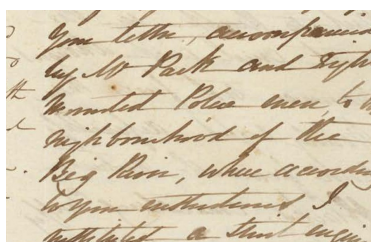 your letter, accompanied
by Mr Park and Eight
mounted Police men to
neighbourhood of the
Big River, where according
to your instructions I
instituted a strict